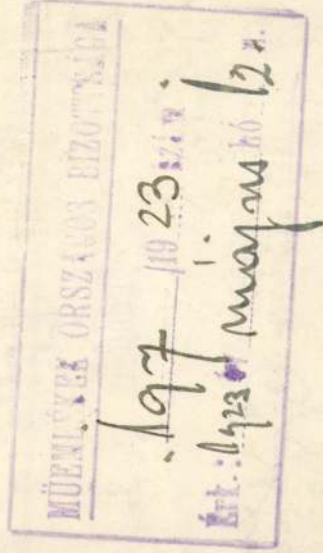 MŰEMLÉKEK ORSZÁGOS BIZOTTSÁGA
197 /19 23 szám
Érk.: 1923 május hó 12. n.